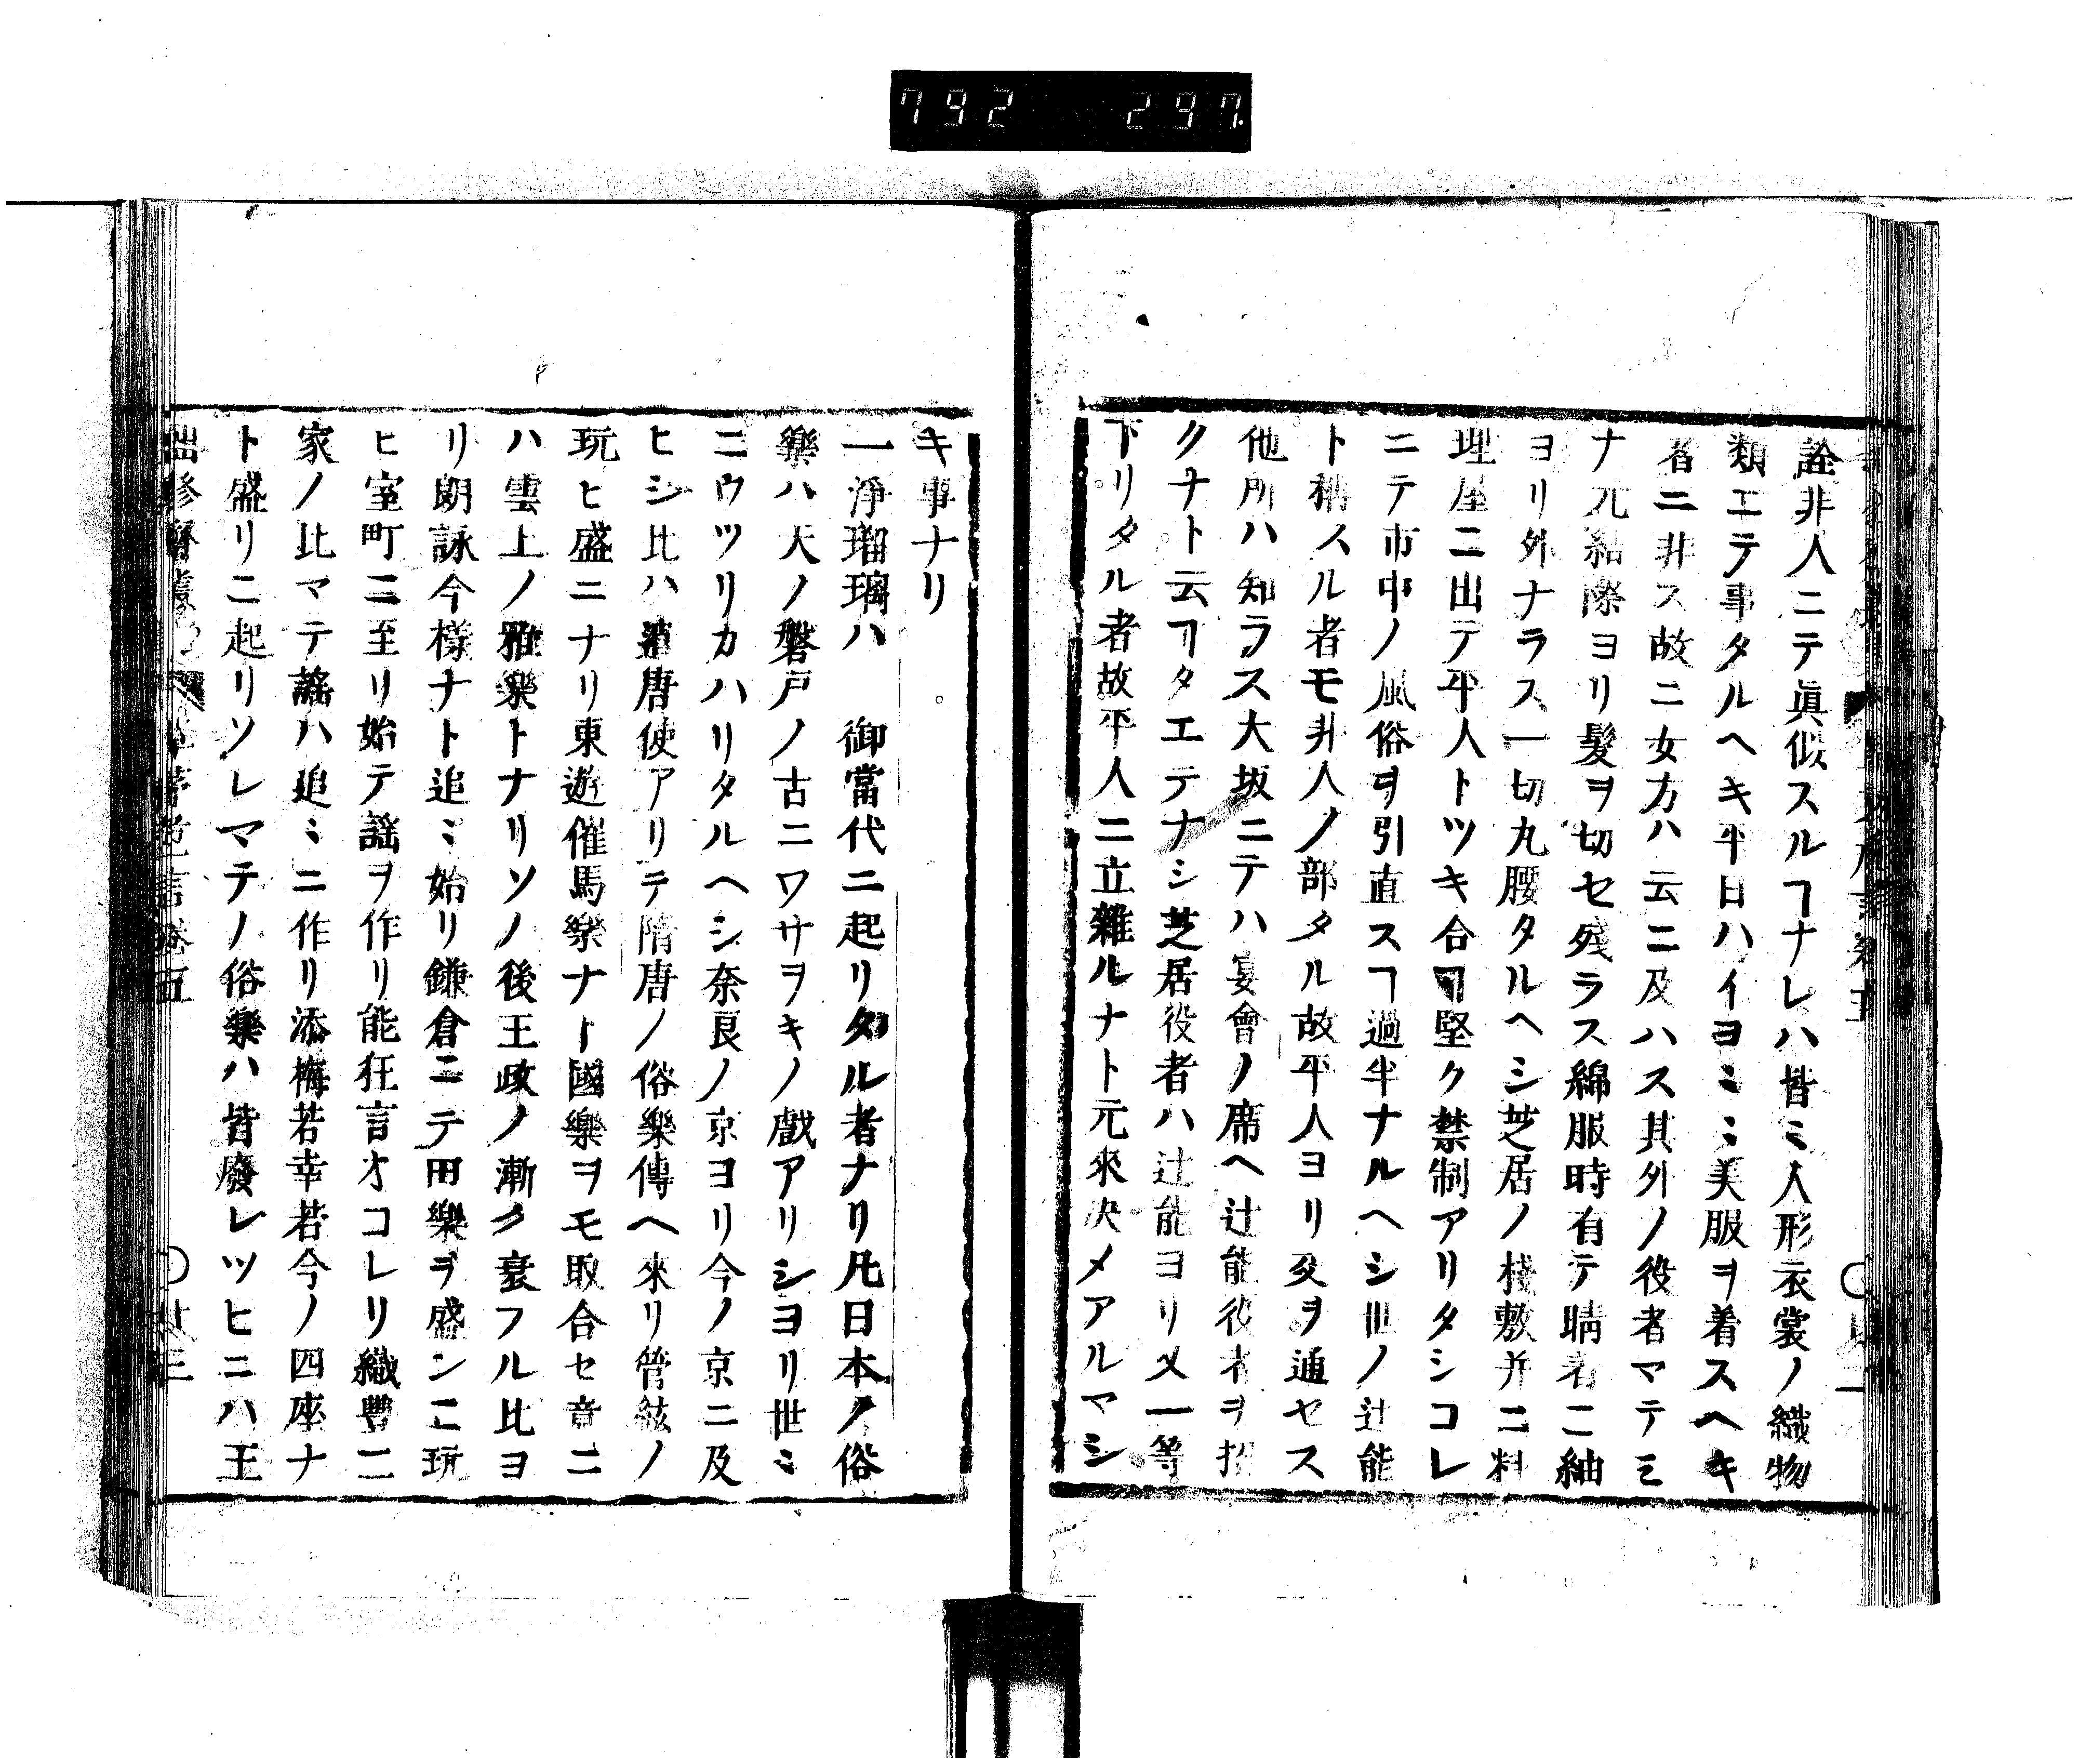 792 297
詮非人ニテ眞似スルヿナレハ皆ミ人形衣裳ノ織物
類エテ事タルヘキ平日ハイヨミミ美服ヲ着スヘキ
者ニ非ス故ニ女方ハ云ニ及ハス其外ノ役者マテミ
ナ元結際ヨリ髮ヲ切セ残ラス綿服時有テ晴着ニ紬
ヨリ外ナラス一切丸腰タルヘシ芝居ノ棧敷并ニ料
理屋ニ出テ平人トツキ合ヿ堅ク禁制アリタシコレ
ニテ市中ノ風俗ヲ引直スヿ過半ナルヘシ世ノ辻能
ト稱スル者モ非人ノ部タル故平人ヨリ交ヲ通セス
他所ハ知ラス大坂ニテハ宴會ノ席ヘ辻能役者ヲ招
クナト云ヿタエテナシ芝居役者ハ辻能ヨリ又一等
下リタル者故平人ニ立雜ルナト元來决メアルマシ
キ事ナリ
一淨瑠璃ハ 御當代ニ起リタル者ナリ凡日本ノ俗
樂ハ大ノ磐戸ノ古ニワサヲキノ戲アリシヨリ世ミ
ニウツリカハリタルヘシ奈良ノ京ヨリ今ノ京ニ及
ヒシ比ハ遣唐使アリテ隋唐ノ俗樂傳ヘ來リ管絃ノ
玩ヒ盛ニナリ東遊催馬樂ナト國樂ヲモ取合セ竟ニ
ハ雲上ノ雅樂トナリソノ後王政ノ漸ク衰フル比ヨ
リ朗詠今様ナト追ミ始リ鎌倉ニテ田樂ヲ盛ンニ玩
ヒ室町ニ至リ始テ謡ヲ作リ能狂言オコレリ織豐二
家ノ比マテ謡ハ追ミニ作リ添梅若幸若今ノ四座ナ
ト盛リニ起リソレマテノ俗樂ハ皆廢レツヒニハ王